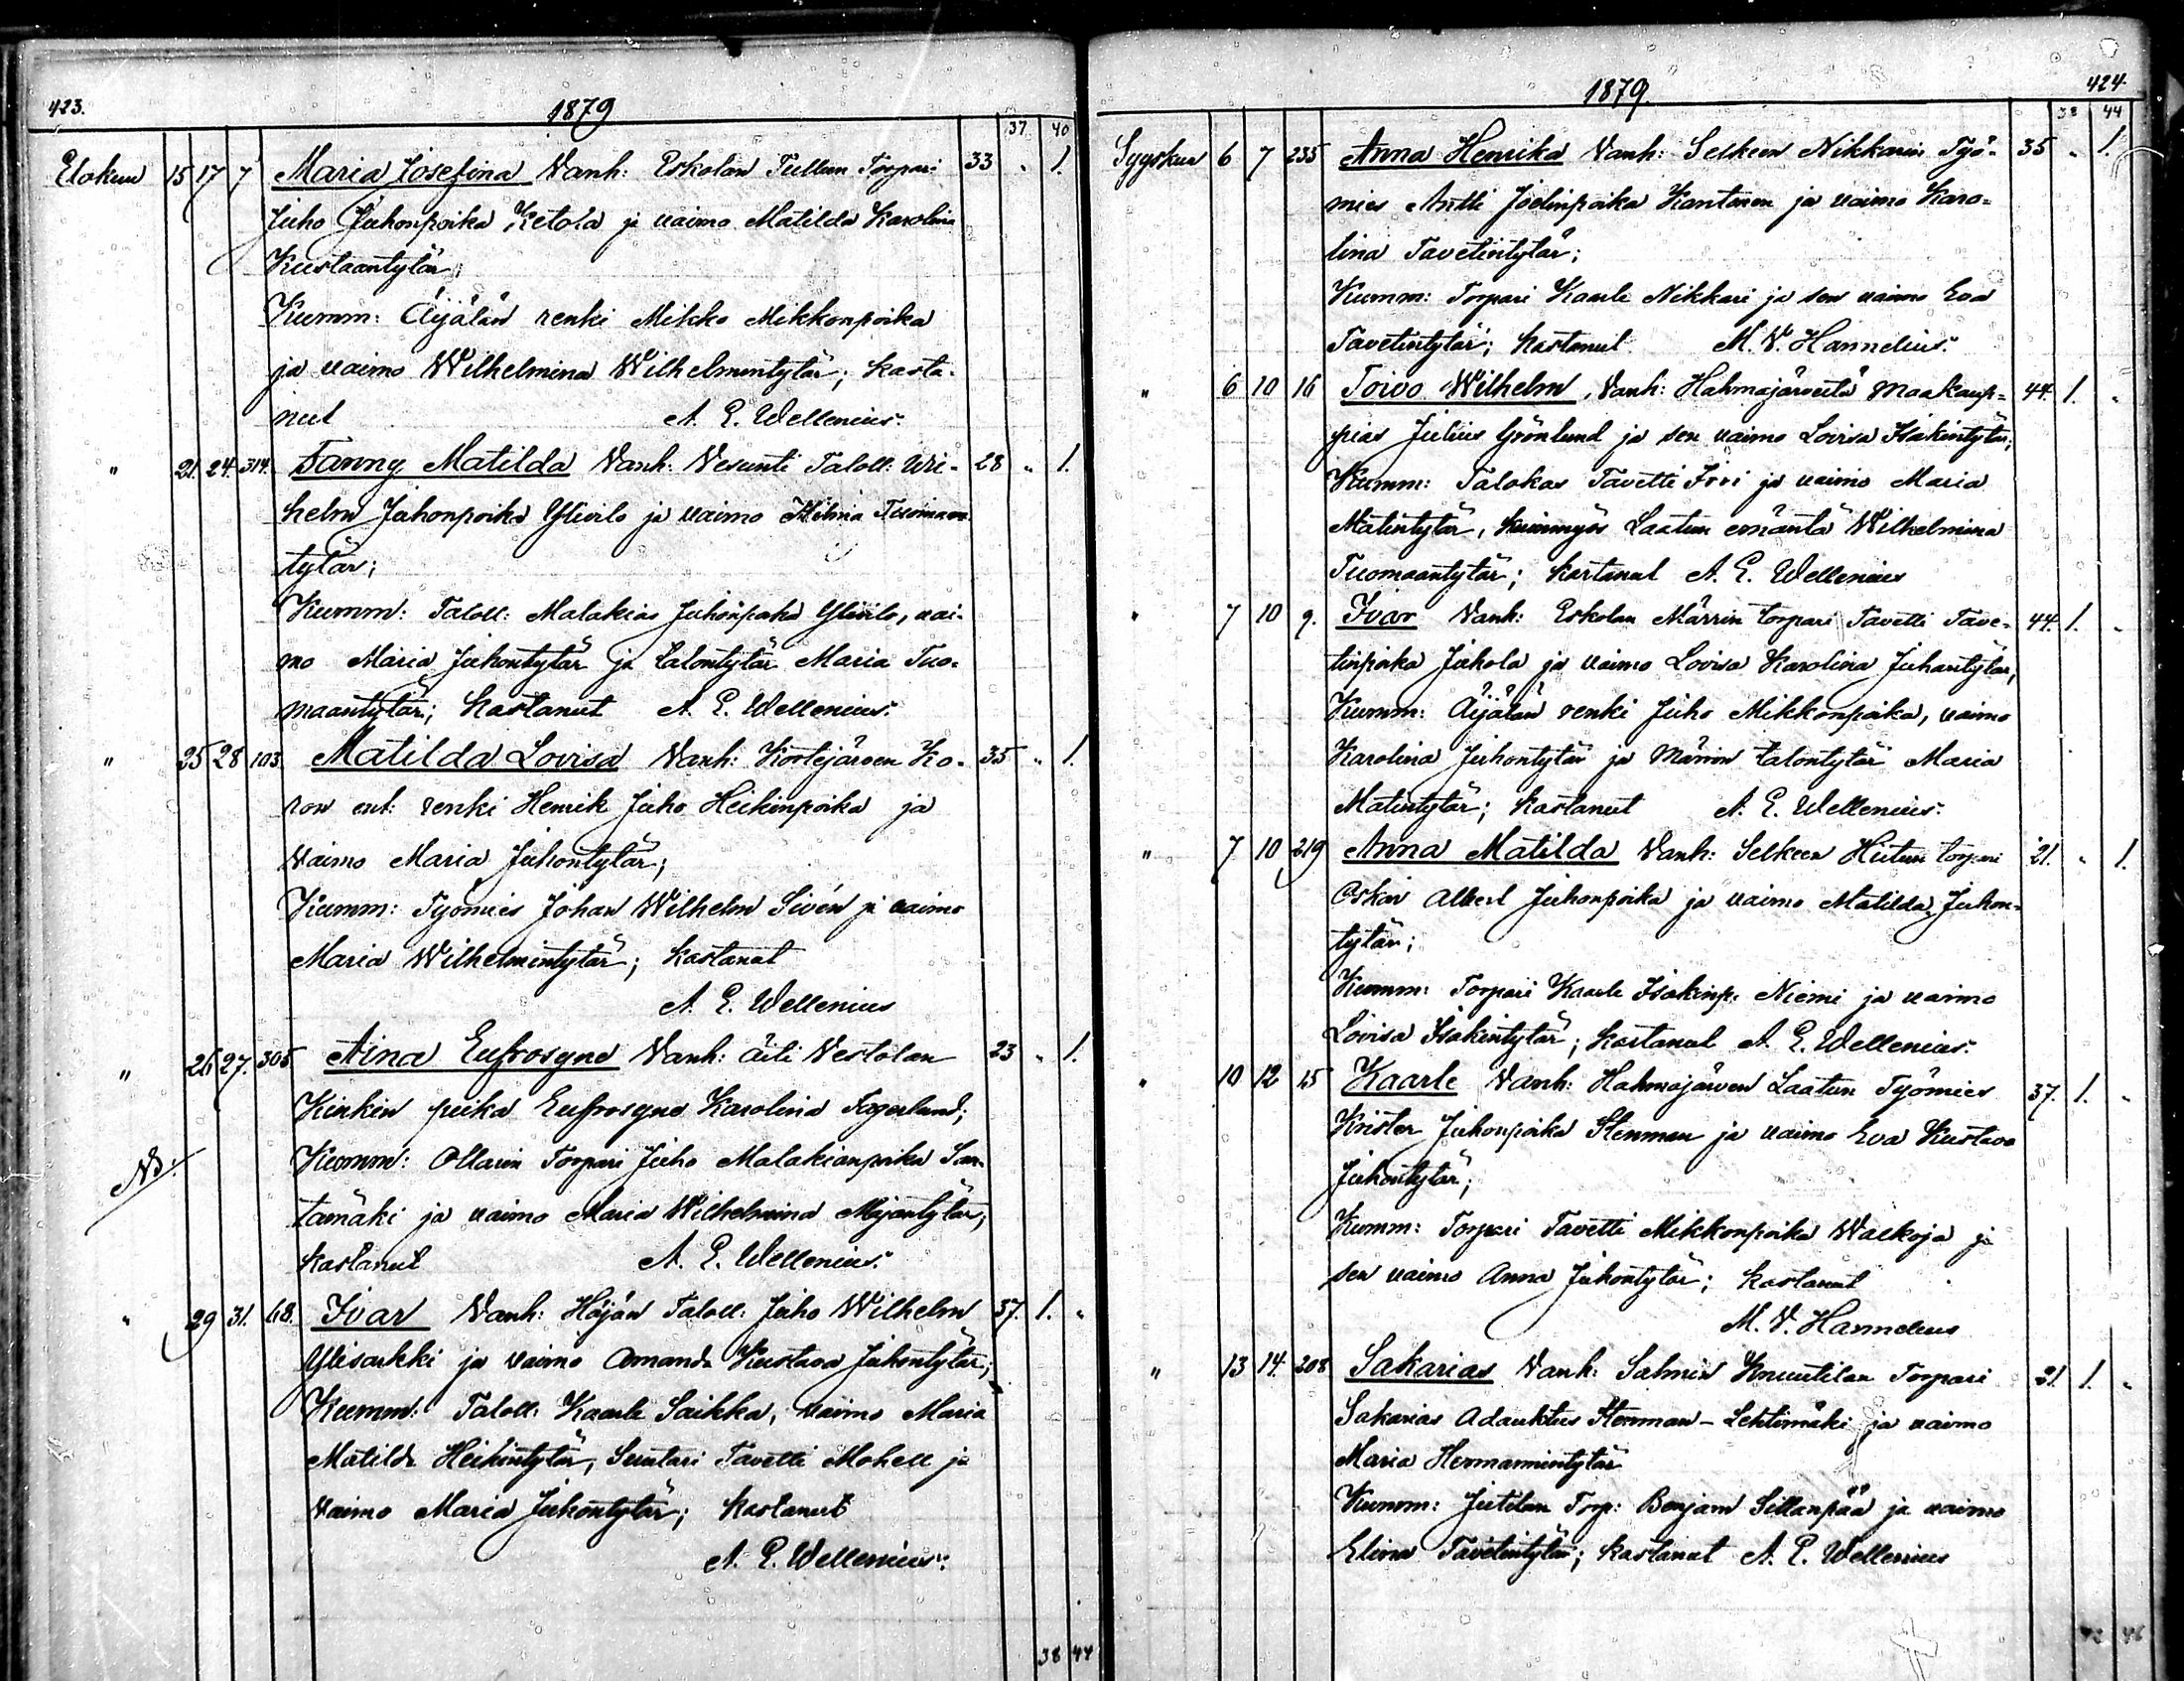 423.
1879
37 40
Elokuu 15 17 7 Maria Josefina Vanh: Eskolan Tullun Torpari 33 " 1.
Juho Juhonpoika Ketola ja vaimo Matilda Karolina
Kustaantytär;
Kumm: Äijälän renki Mikko Mikkonpoika
ja vaimo Wilhelmina Wilhelmintytär; kasta-
nut A. E. Wellenius.
" 21. 24. 314. Fanny Matilda Vanh: Vesunti Taloll: Wil-
helm Juhonpoika Ylivilo ja vaimo Hilma Tuomaan 28 " 1.
tytär;
Kumm: Taloll: Malakias Juhonpoika Ylivilo, vai-
mo Maria Juhontytär ja talontytär Maria Tuo-
maantytär; kastanut A. E. Wellenius.
" 25 28 103 Matilda Lovisa Vanh: Kortejärven Ko- 35 " 1.
ron ent: renki Henrik Juho Heikinpoika ja
vaimo Maria Juhontytär;
Kumm: Työmies Johan Wilhelm Sivén ja vaimo
Maria Wilhelmintytär; kastanut
A. E. Wellenius
" 26 27. 305 Aina Eufrosyne Vanh: äiti Vestolan 23 " 1.
Kinkin piika Eufrosyne Karolina Fagerlund;
NB. Kumm: Ollarin Torpari Juho Malakianpoika San-
tamäki ja vaimo Maria Wilhelmina
kastanut A. E. Wellenius.
" 29 31. 68. Ivar Vanh: Höjön Taloll: Juho Wilhelm 37. 1. "
Ylisarkki ja vaimo Amanda Kustava Juhontytär;
Kumm: Taloll: Kaarle Saikka, vaimo Maria
Matilda Heikintytär, Suntari Tavetti Mohell ja
vaimo Maria Juhontytär; kastanut
A. E. Wellenius.
38 44
424.
1879.
38 44
Syyskuu 6 7 235 Anna Henrika Vanh: Selkeen Nikkarin Työ- 35 " 1.
mies Antti Joelinpoika Kantonen ja vaimo Karo-
lina Tavetintytär;
Kumm: Torpari Kaarle Nikkari ja sen vaimo Eva
Tavetintytär; kastanut M. V. Hannelius.
" 6 10 16 Toivo Wilhelm, Vanh: Hahmajärveltä maakaup- 44. 1. "
pias Julius Grönlund ja sen vaimo Lovisa Isakintytär;
Kumm: Talokas Tavetti ja vaimo Maria
Matintytär, kuinmyös Laatun emäntä Wilhelmina
Tuomaantytär; kastanut A. E. Wellenius
" 7 10 9. Ivar Vanh: Eskolan Märrin torpari Tavetti Tave- 44. 1. "
tinpoika Juhola ja vaimo Lovisa Karolina Juhantytär;
Kumm: Äijälän renki Juho Mikkonpoika, vaimo
Karolina Juhontytär ja Märrin talontytär Maria
Matintytär; kastanut A. E. Wellenius.
" 7 10 219 Anna Matilda Vanh: Selkeen Hiitun torpari 21. " 1.
Oskar Albert Juhonpoika ja vaimo Matilda Juhon-
tytär;
Kumm: Torpari Kaarle Isakinp: Niemi ja vaimo
Lovisa Isakintytär; kastanut A. E. Wellenius.
" 10 12 15 Kaarle Vanh: Hahmajärven Laatun Työmies 37. 1. "
Krister Juhonpoika Stenman ja vaimo Eva Kustava
Juhontytär;
Kumm: Torpari Tavetti Mikkonpoika Walkoja ja
sen vaimo Anna Juhontytär; kastanut
M. V. Hannelius
" 13 14. 208 Sakarias Vanh: Salmin Knuutilan Torpari 21. 1. "
Sakarias Adauktus Stenman-Lehtimäki ja vaimo
Maria Hermannintytär
Kumm: Juttilan Torp: Benjam Sillanpää ja vaimo
Elina Tavetintytär; kastanut A. E. Wellenius
46